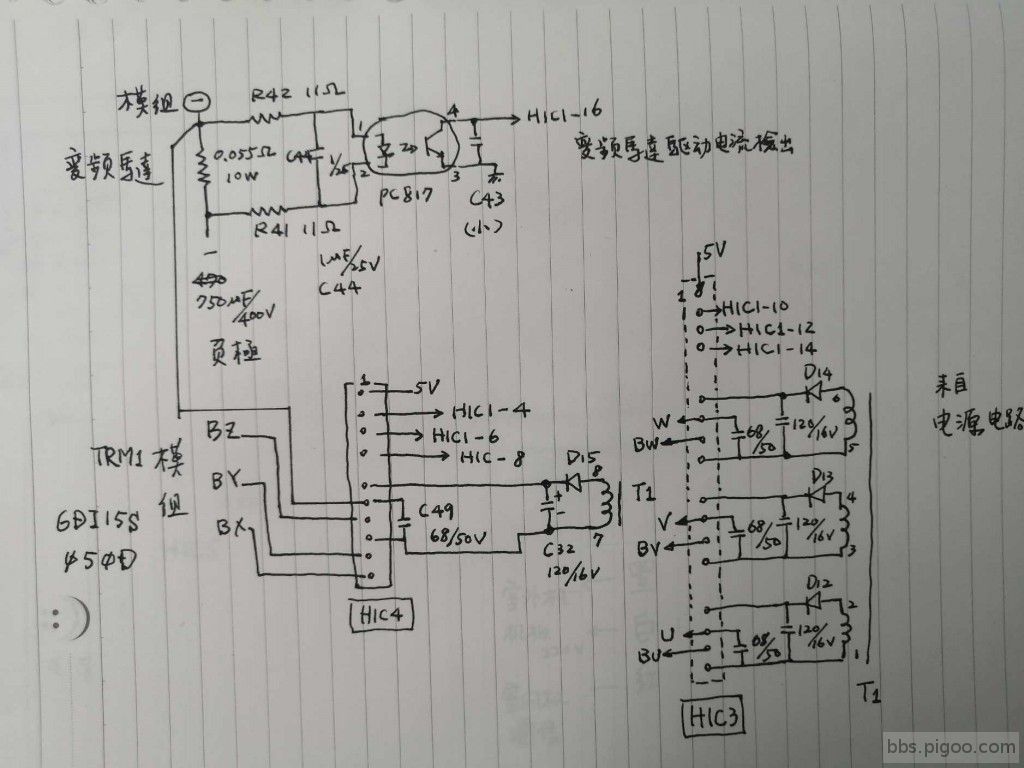 模组 ⊖
R42 11Ω
4
HIC1-16
变频馬達
0.055Ω
10W
C44
1/25
1
2
3
PC817
C43
(小)
变频馬達驱动电流檢出
R41 11Ω
1μF/25V
C44
750μF/400V
负極
5V
1 8
HIC1-10
HIC1-12
HIC1-14
D14
6
5
W
BW
68/50
120/16V
来自
电源电路
1
5V
HIC1-4
HIC1-6
HIC-8
BZ
BY
BX
TRM1 模组
6DI15S
φ5φD
D15
8
7
T1
C49
68/50V
+
-
C32
120/16V
HIC4
D13
4
3
V
BV
68/50
120/16V
D12
2
1
U
BU
68/50
120/16V
HIC3
T1
:)
bbs.pigoo.com